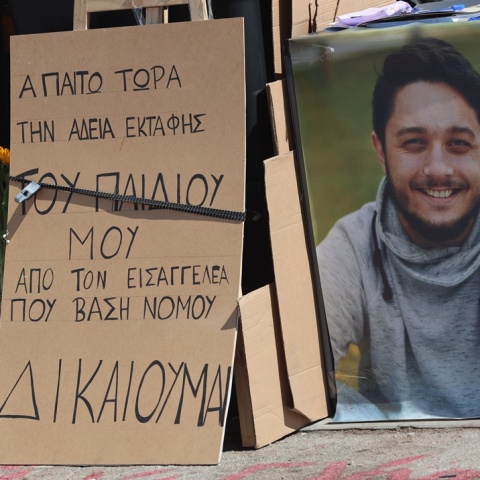 ΑΠΑΙΤΩ ΤΩΡΑ
ΤΗΝ ΑΔΕΙΑ ΕΚΤΑΦΗΣ
ΤΟΥ ΠΑΙΔΙΟΥ
ΜΟΥ
ΑΠΟ ΤΟΝ ΕΙΣΑΓΓΕΛΕΑ
ΠΟΥ ΒΑΣΗ ΝΟΜΟΥ
ΔΙΚΑΙΟΥΜΑΙ